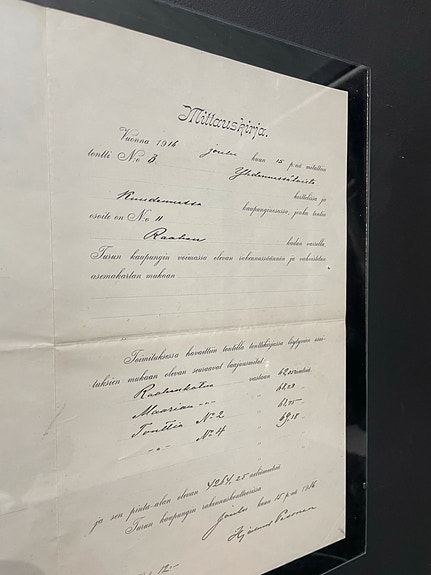 Mittauskirja.
Vuonna 1916 joulu kuun 15 p:nä mitattiin
tontti N:o 3 Yhdennessätoista
korttelissa ja
Kuudennessa kaupunginosassa, jonka tontin
osoite on N:o 11
Raahen kadun varrella.
Turun kaupungin voimassa olevan rakennussäännön ja vahvistetun
asemakartan mukaan
Toimituksessa havaittiin tontilla tonttikirjassa löytyvien
mukaan olevan seuraavat laajuusmitat:
Raahenkatua vastaan 62,05 metriä.
Maarian -„- „ „
Tonttia N:o 2 „ „
-„- N:o 4 „ 69,18 „
ja sen pinta-alan olevan 4264,25 neliömetriä
Turun kaupungin rakennuskonttorissa
Joulu kuun 15 p:nä 1916